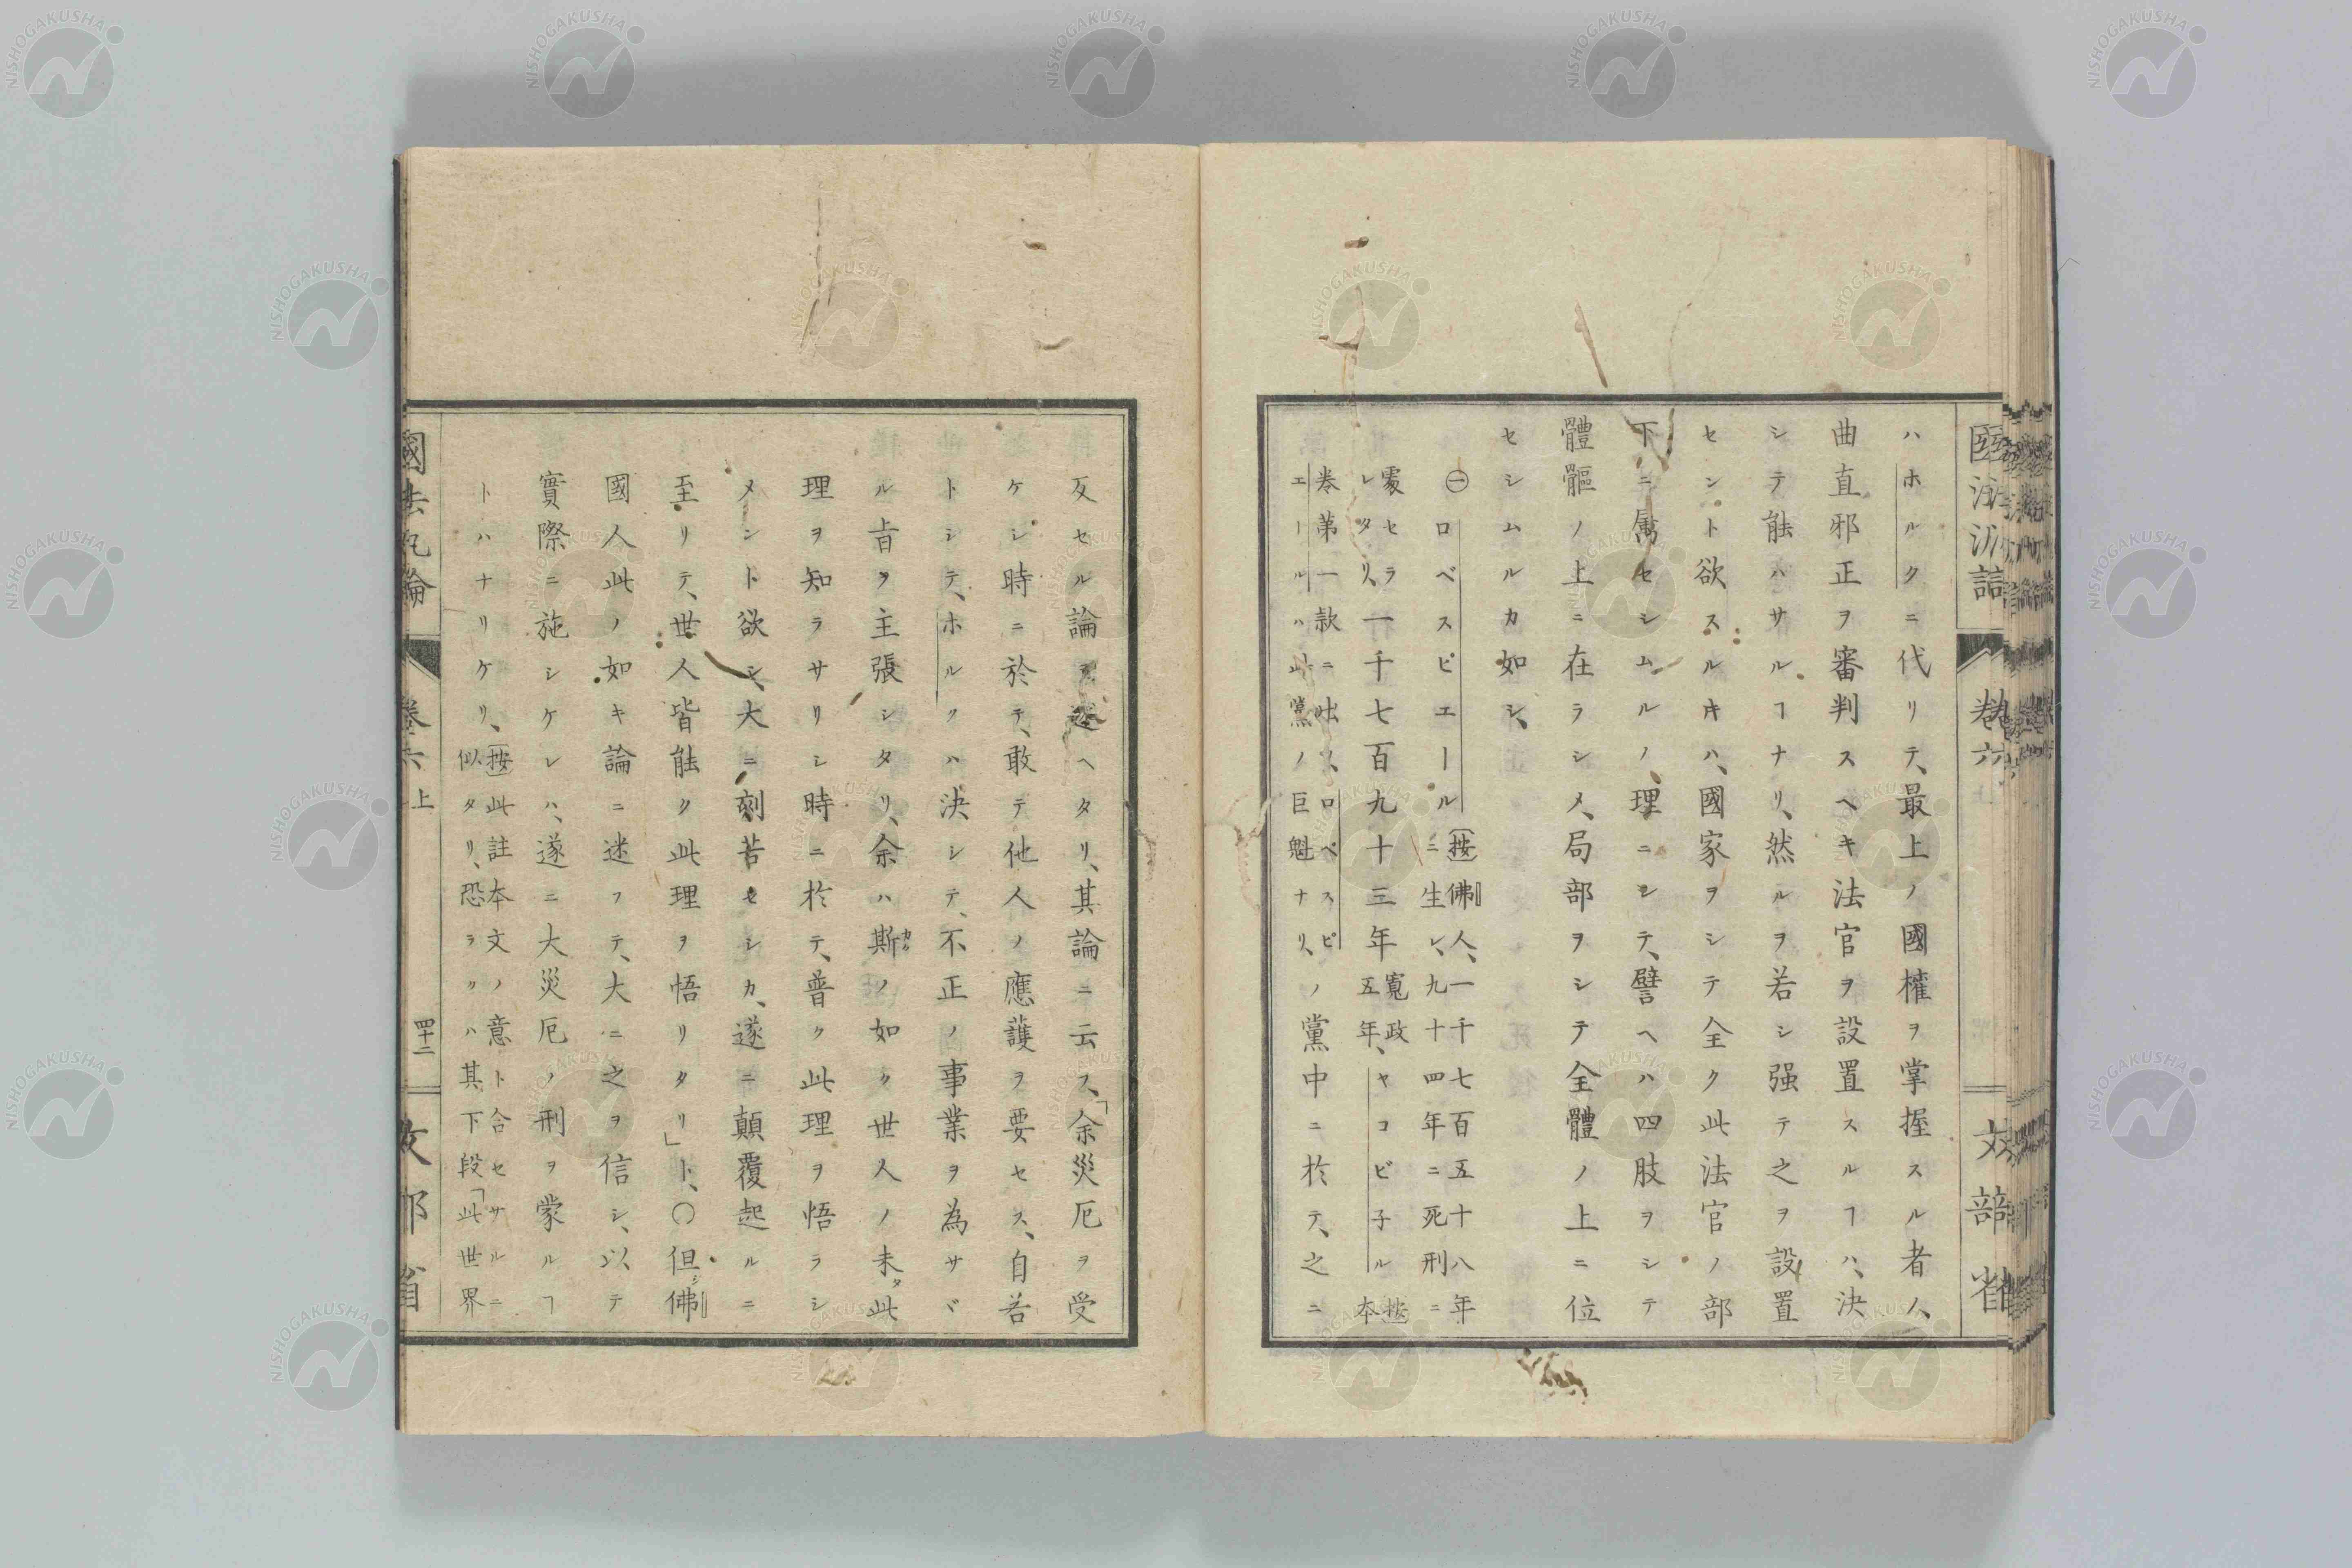 ハホルクニ代リテ、最上ノ國權ヲ掌握スル者ノ人、
曲直邪正ヲ審判スヘキ法官ヲ設置スルヿハ、決
シテ能ハサルヿナリ、然ルヲ若シ强テ之ヲ設置
セント欲スルキハ、國家ヲシテ全ク此法官ノ部
下ニ属セシムルノ、理ニシテ、譬ヘハ四肢ヲシテ
體軀ノ上ニ在ラシメ、局部ヲシテ全體ノ上ニ位
セシムルカ如シ、
㊀ロベスピエール
(按)佛人、一千七百五十八年
ニ生レ、九十四年ニ死刑ニ
處セラ
レタリ、
一千七百九十三年
寛政
五年、
ヤコビ子ル
按
本
巻第一款ニ出ス、ロベスピ
エールハ此黨ノ巨魁ナリ、
ノ黨中ニ於テ、之ニ
國法汎論
卷六
文部省
反セル論ヲ述ヘタリ、其論ニ云フ、「余災厄ヲ受
ケシ時ニ於テ、敢テ他人ノ應護ヲ要セス、自若
トシテ、ホルクハ決シテ、不正ノ事業ヲ為サヾ
ル旨ヲ主張シタリ、余ハ斯ノ如ク世人ノ未タ此
理ヲ知ラサリシ時ニ於テ、普ク此理ヲ悟ラシ
メント欲シ、大ニ刻苦セシカ、遂ニ顛覆起ルニ
至リテ、世人皆能ク此理ヲ悟リタリ」ト、〇但シ佛
國人此ノ如キ論ニ迷フテ、大ニ之ヲ信シ、以テ
實際ニ施シケレハ、遂ニ大災厄ノ刑ヲ蒙ルヿ
トハナリケリ、
(按)此註本文ノ意ト合セサルニ
似タリ、恐ラクハ其下段「此世界
國法汎論
卷六上
四十二
文部省
NISHOGAKUSHA